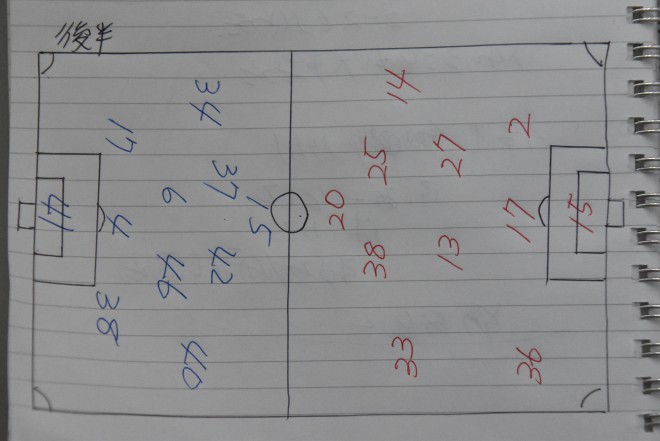 後半
34
17
37
6
15
41
4
42
46
38
40
14
2
27
25
20
17
15
38
13
33
36